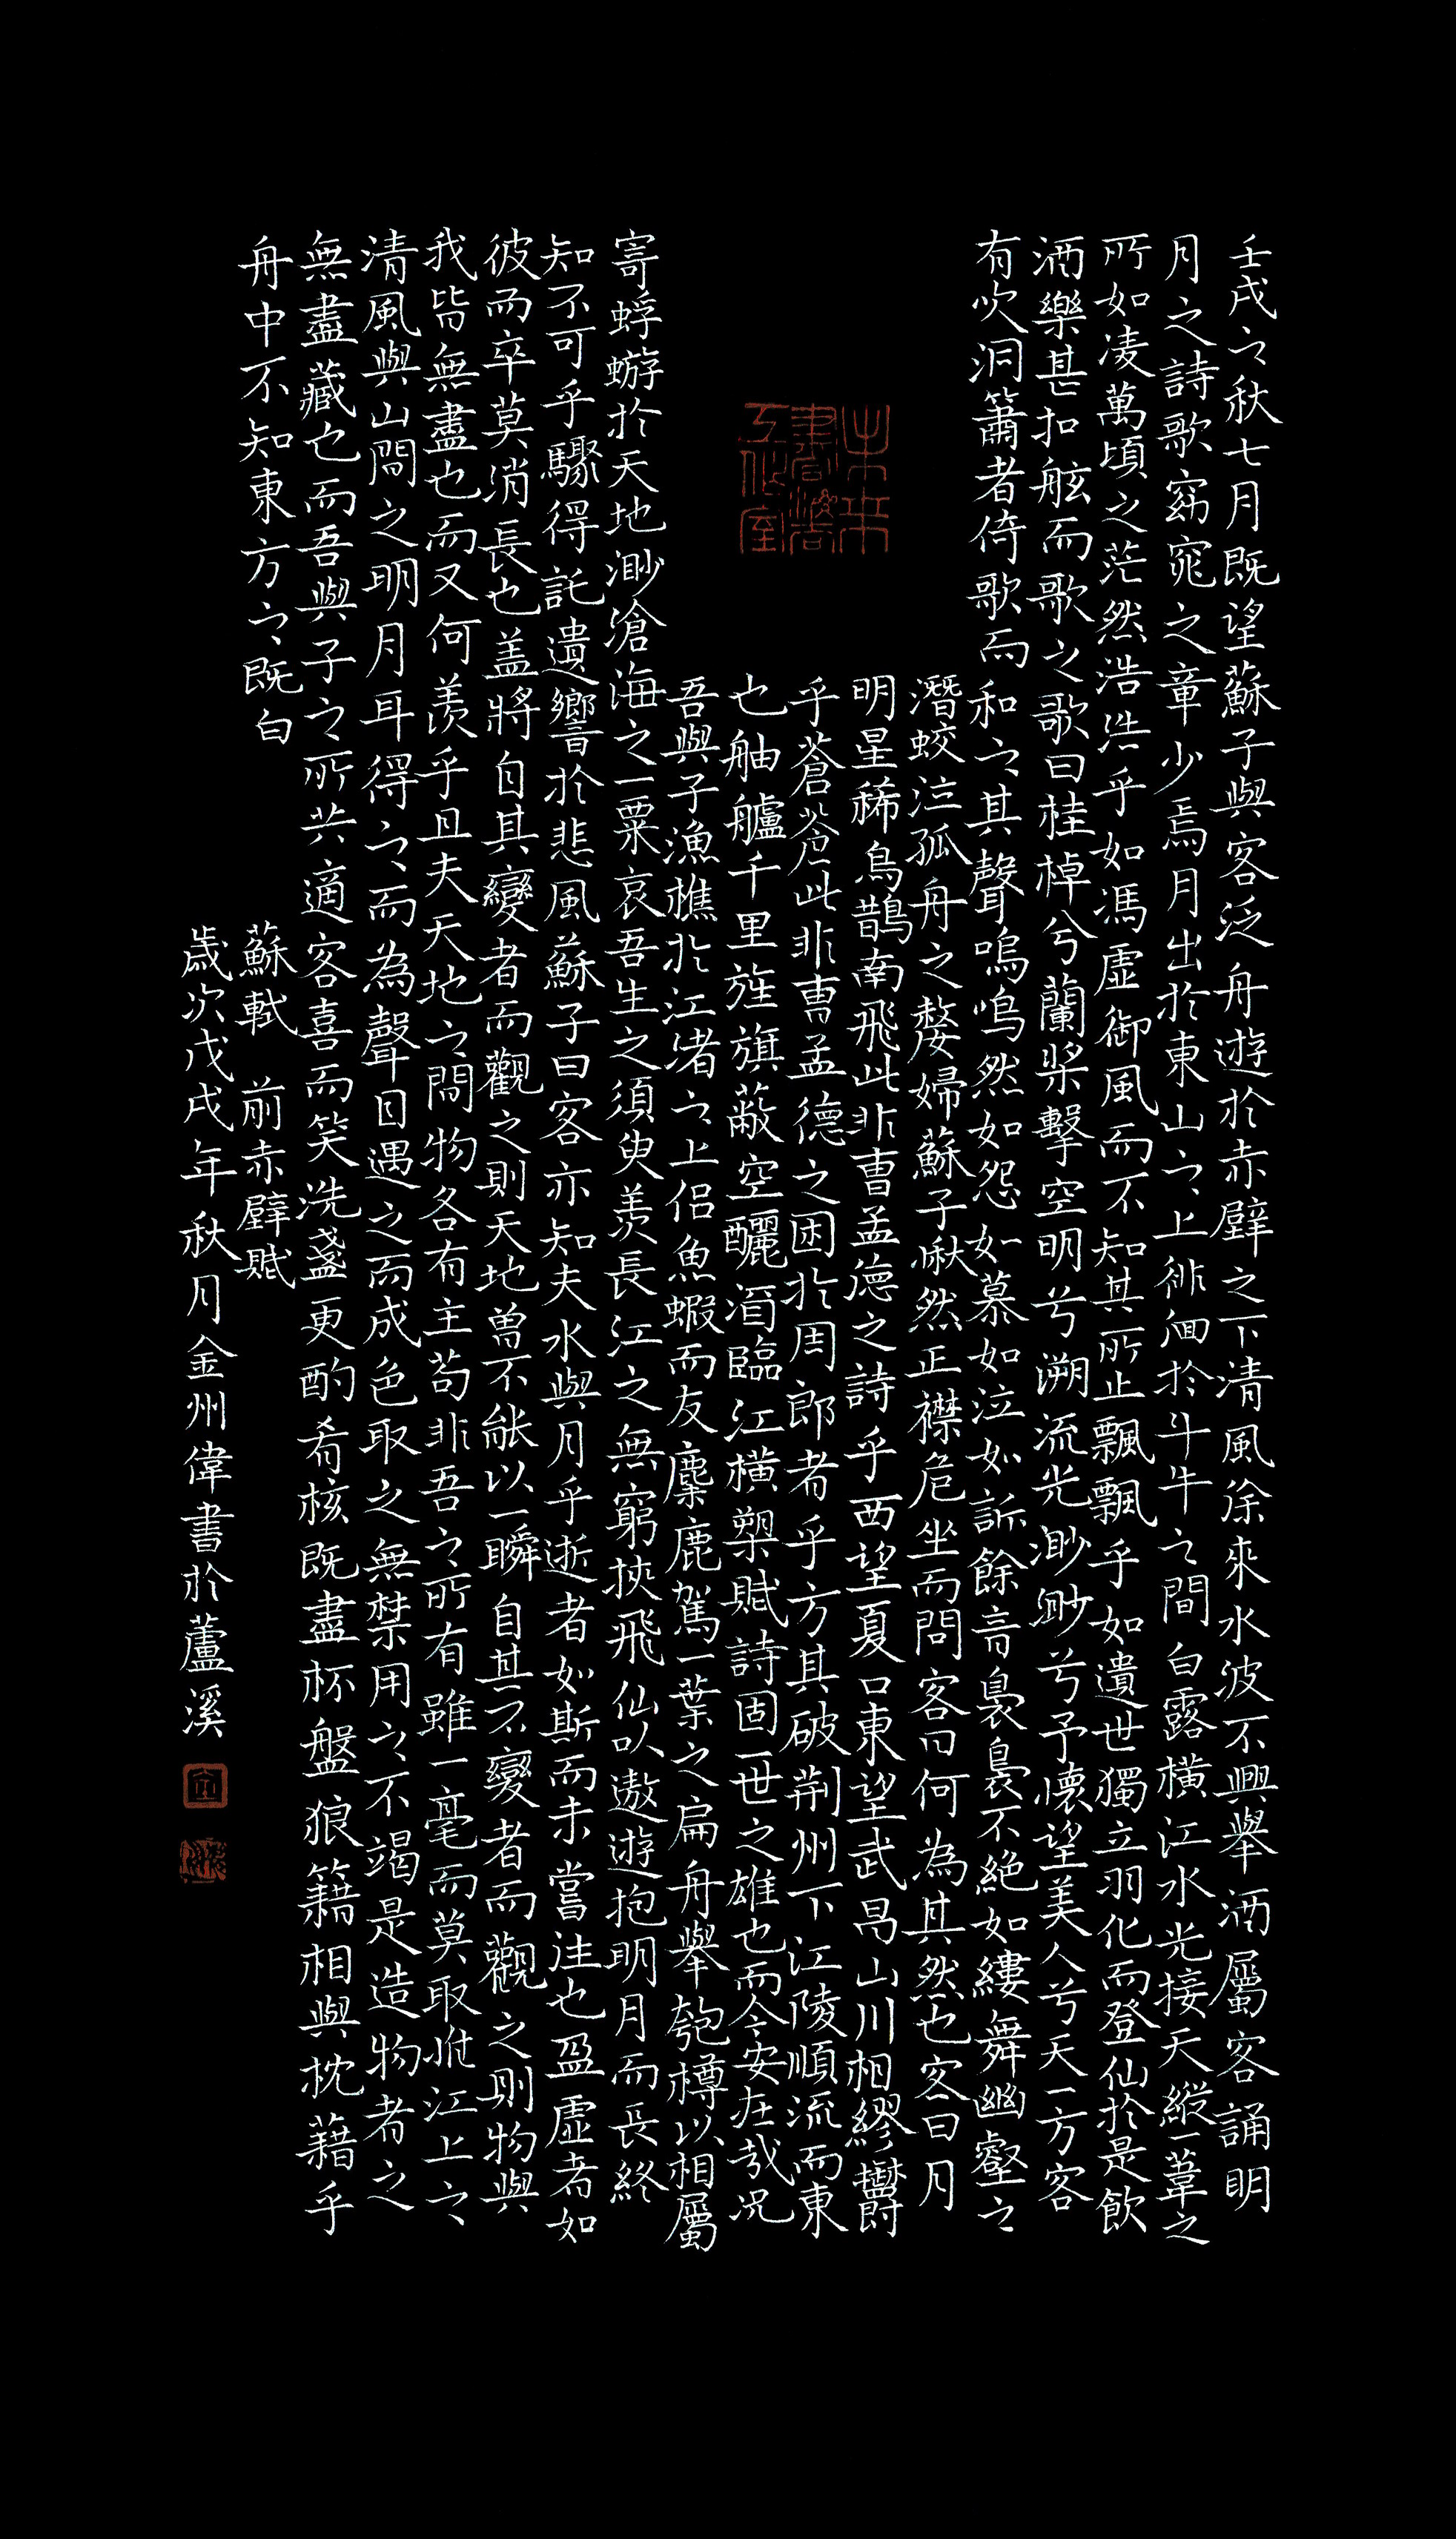 壬戌之秋七月既望蘇子與客泛舟遊於赤壁之下清風徐來水波不興舉酒屬客誦明
月之詩歌窈窕之章少焉月出於東山之上徘徊於斗牛之間白露橫江水光接天縱一葦之
所如凌萬頃之茫然浩浩乎如馮虛御風而不知其所止飄飄乎如遺世獨立羽化而登仙於是飲
酒樂甚扣舷而歌之歌曰桂棹兮蘭槳擊空明兮溯流光渺渺兮予懷望美人兮天一方客
有吹洞簫者倚歌而和之其聲嗚嗚然如怨如慕如泣如訴餘音裊裊不絕如縷舞幽壑之
未来書灋工作室
潛蛟泣孤舟之嫠婦蘇子愀然正襟危坐而問客曰何為其然也客曰月
明星稀烏鵲南飛此非曹孟德之詩乎西望夏口東望武昌山川相繆鬱
乎蒼蒼此非曹孟德之困於周郎者乎方其破荊州下江陵順流而東
也舳艫千里旌旗蔽空釃酒臨江橫槊賦詩固一世之雄也而今安在哉況
吾與子漁樵於江渚之上侶魚蝦而友麋鹿駕一葉之扁舟舉匏樽以相屬
寄蜉蝣於天地渺滄海之一粟哀吾生之須臾羨長江之無窮挾飛仙以遨遊抱明月而長終
知不可乎驟得託遺響於悲風蘇子曰客亦知夫水與月乎逝者如斯而未嘗往也盈虛者如
彼而卒莫消長也蓋將自其變者而觀之則天地曾不能以一瞬自其不變者而觀之則物與
我皆無盡也而又何羨乎且夫天地之間物各有主苟非吾之所有雖一毫而莫取惟江上之
清風與山間之明月耳得之而為聲目遇之而成色取之無禁用之不竭是造物者之
無盡藏也而吾與子之所共適客喜而笑洗盞更酌肴核既盡杯盤狼籍相與枕藉乎
舟中不知東方之既白
蘇軾 前赤壁賦
歲次戊戌年秋月金州偉書於蘆溪